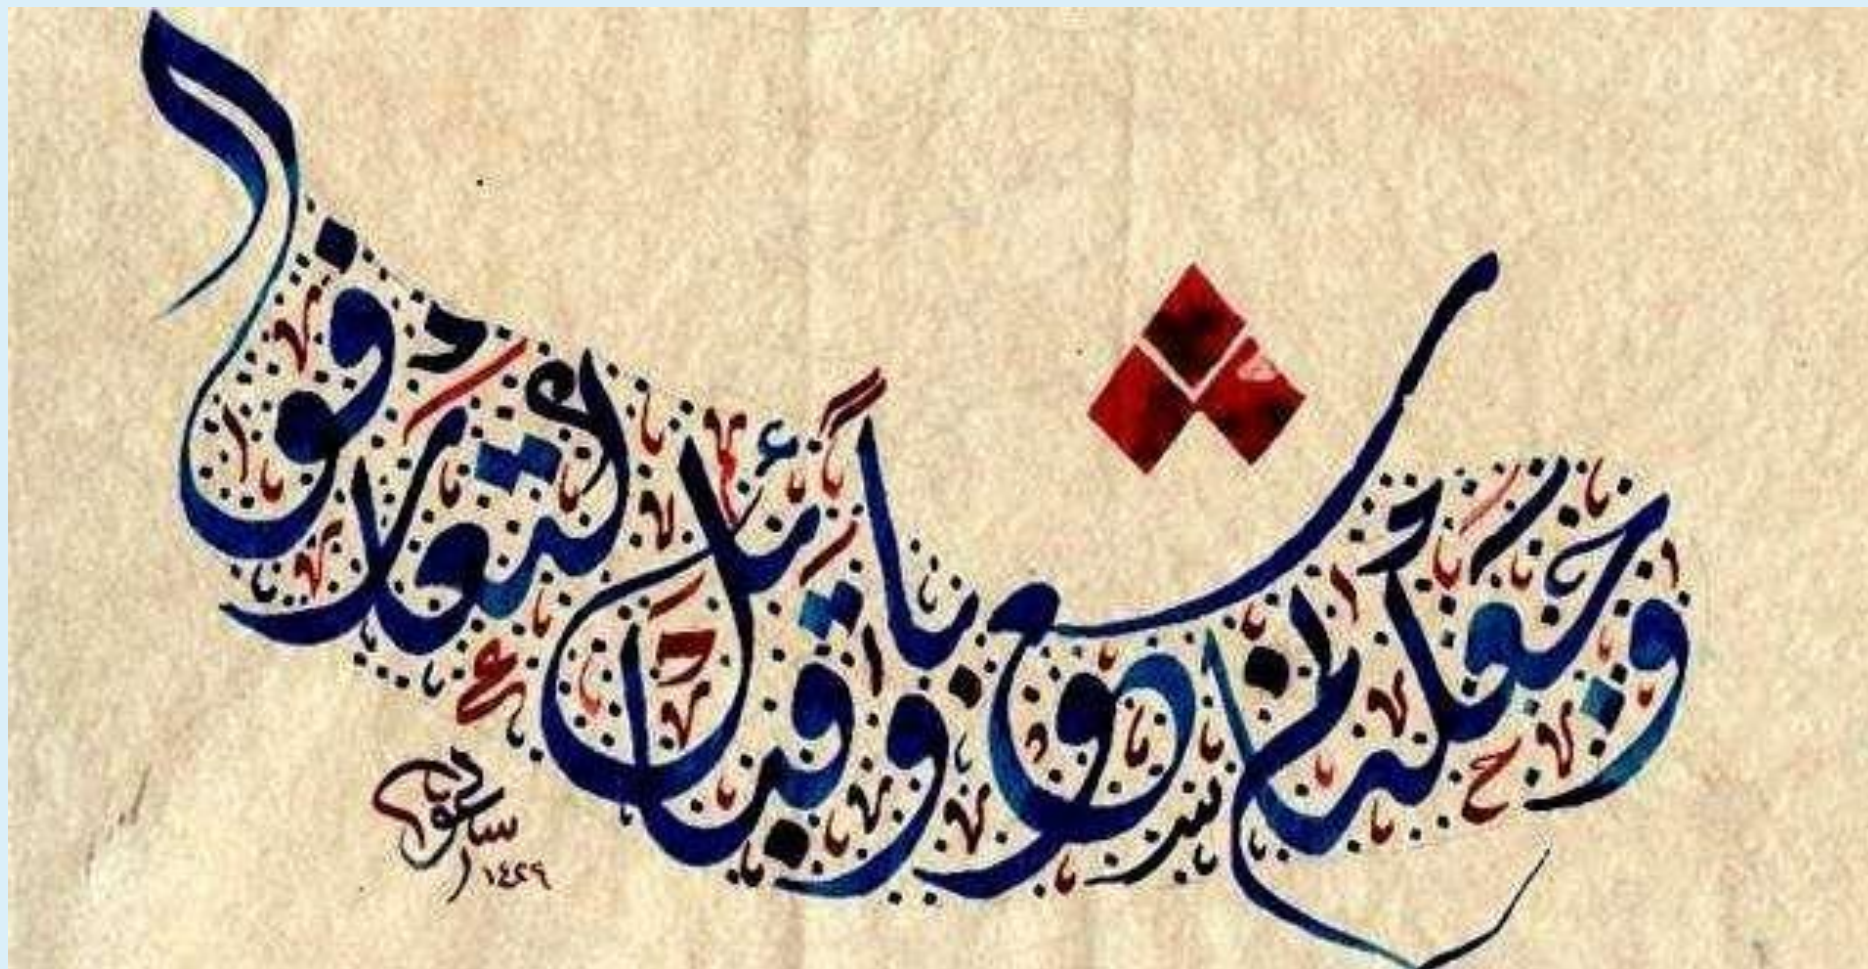 وجعلناكم شعوبا وقبائل لتعارفوا
١٤٢٩